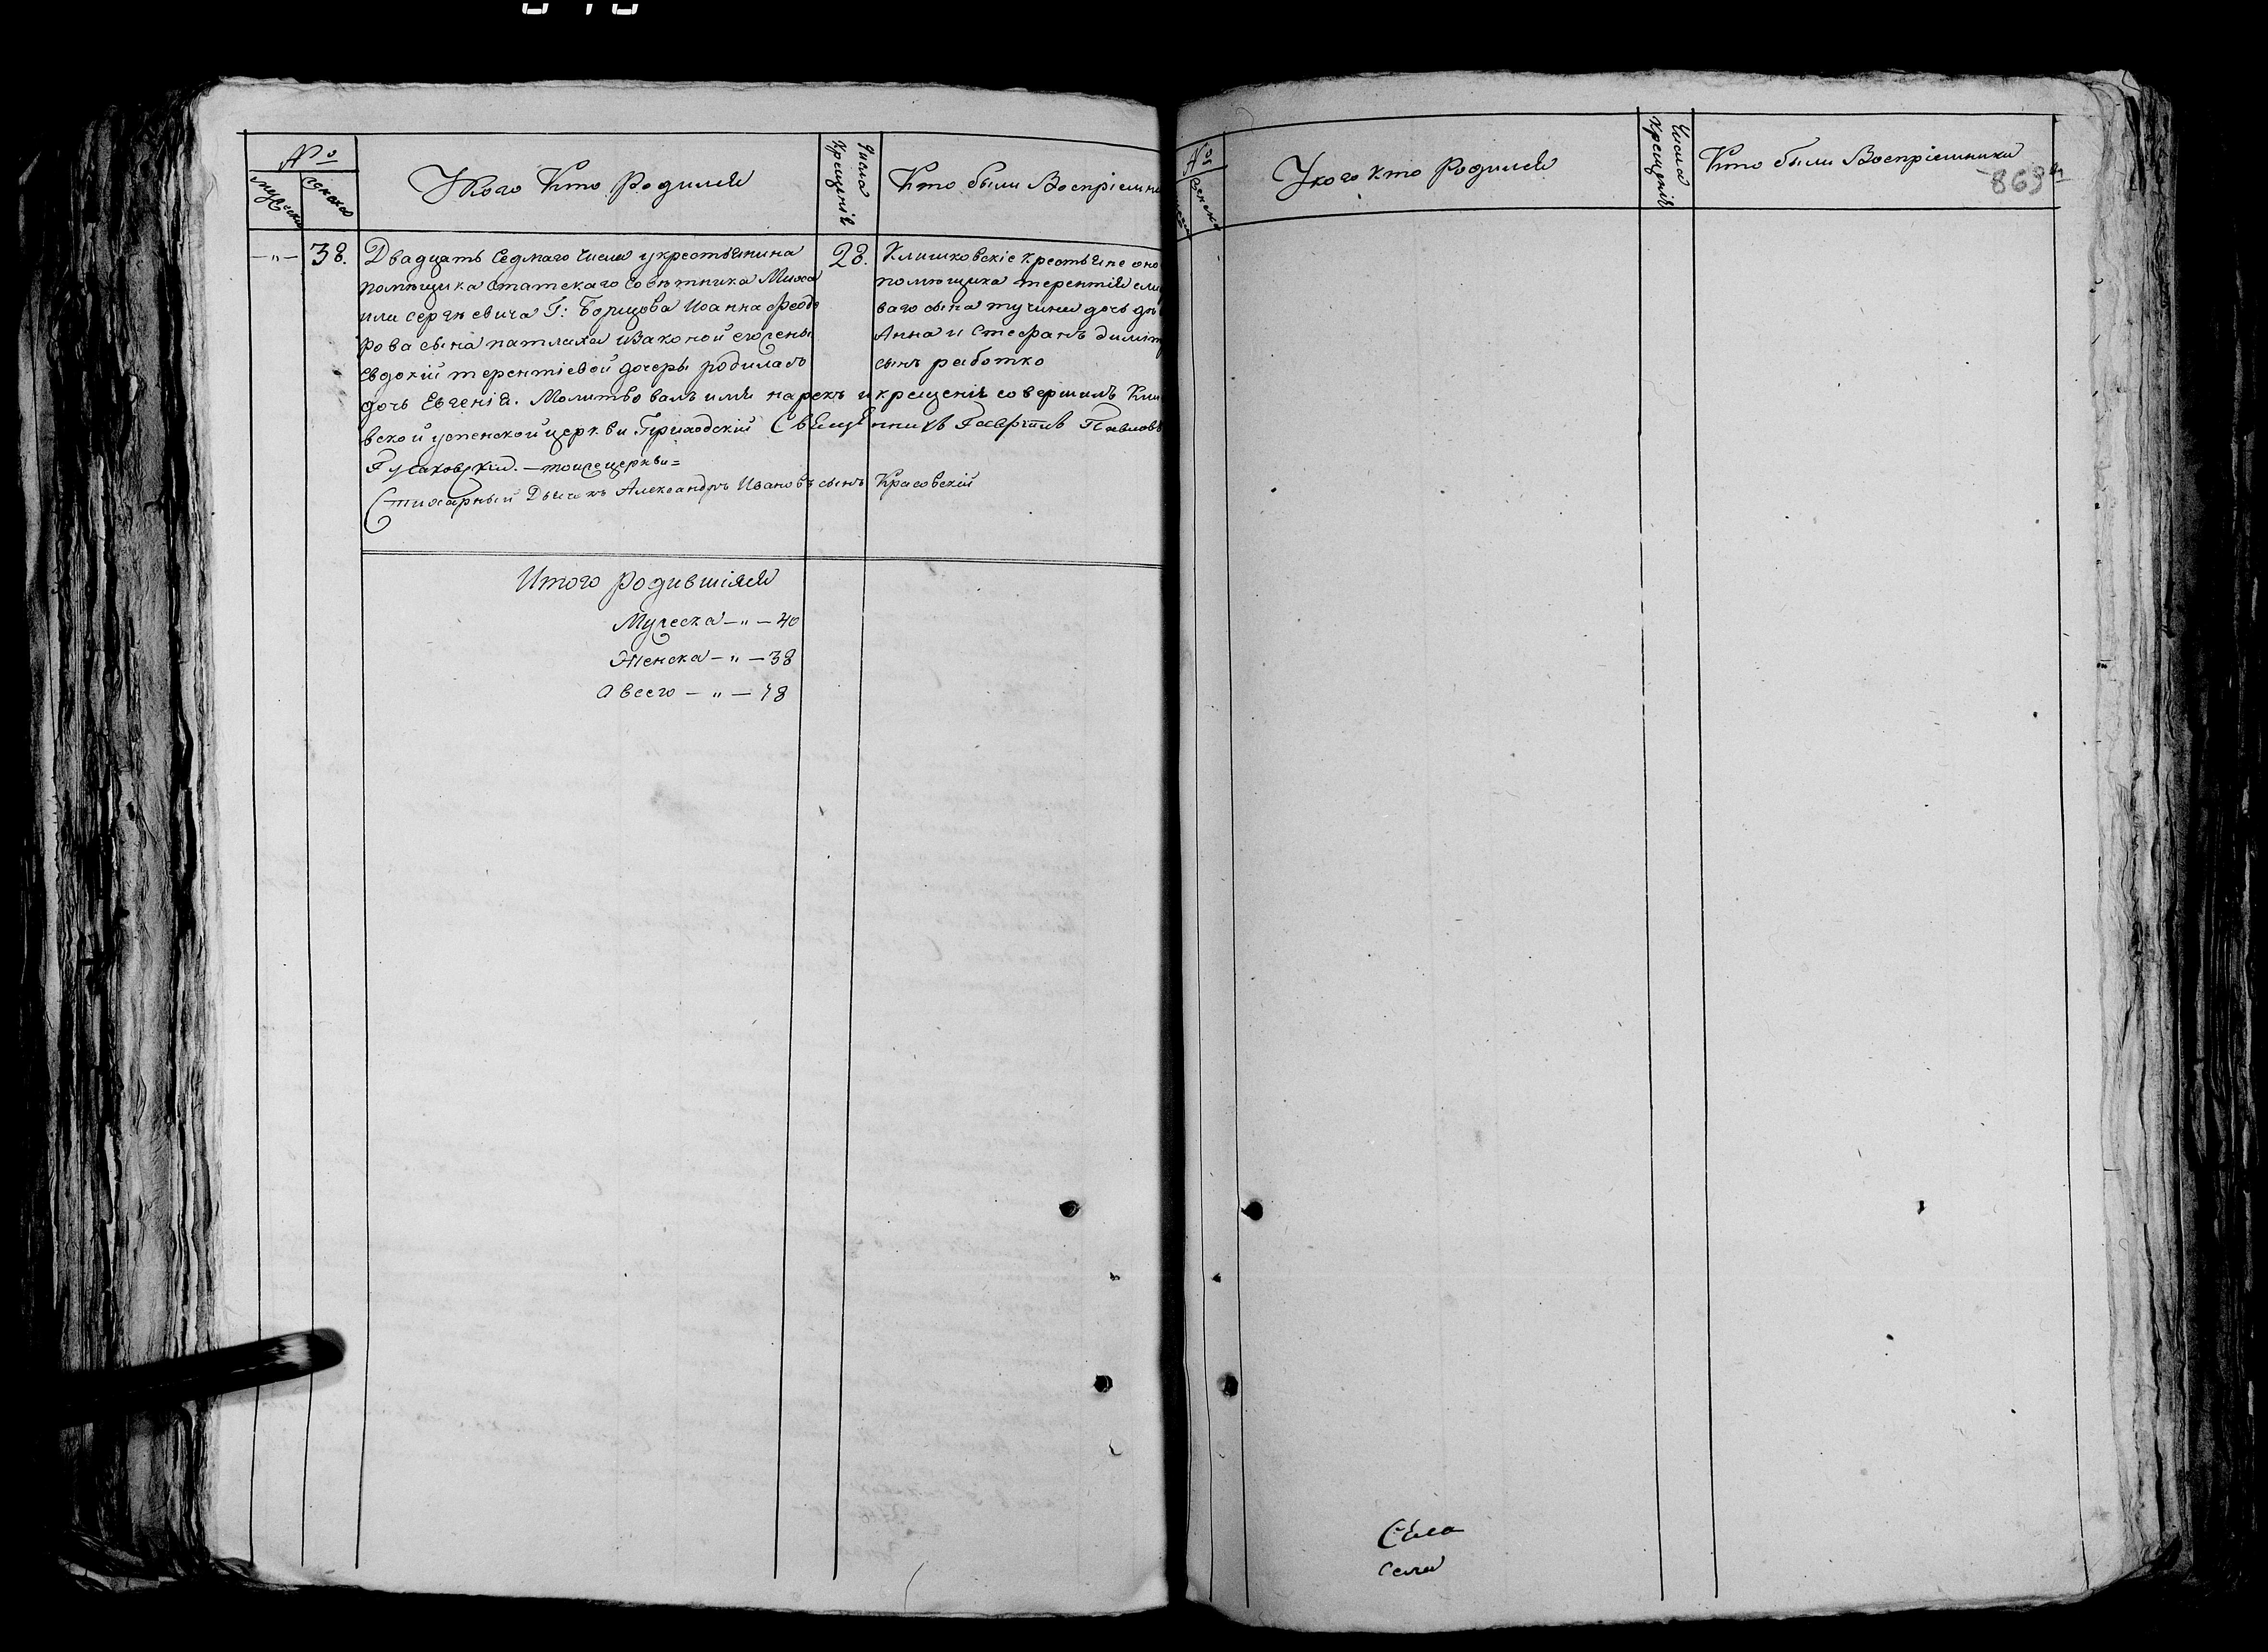 №
мужеска
женска
У Кого Кто Родился
Числа Крещенія
Кто были Воспріемни
— „ — 38.
Двадцать Седмаго Числа у крестьянина
помѣщика статскаго Совѣтника Миха
ила сергѣевича Г: Борщова Иоанна Феодо
рова сына патлаха и законой его жены
Евдокіи терентіевой дочеры родилась
дочь Евгенія. Молитвовалъ имя нарекъ и крещеніе совершилъ Кли
вской успенской церкви Приходскій Священникъ Гавріилъ Павловъ
тоиже церкви =
Стихарный Дьячокъ Александръ Ивановъ сынъ Красовскій
28.
Клишковскіе крестьяне оно
помѣщика терентія
ваго сына дочь
Анна и Стефанъ димит
сынъ работко
Итого родившіяся
Мужеска — „ — 40
Женска — „ — 38
А всего — „ — 78
№
женска
У кого кто Родился
Числа Крещенія
Кто были Воспріемники
869
Села
села